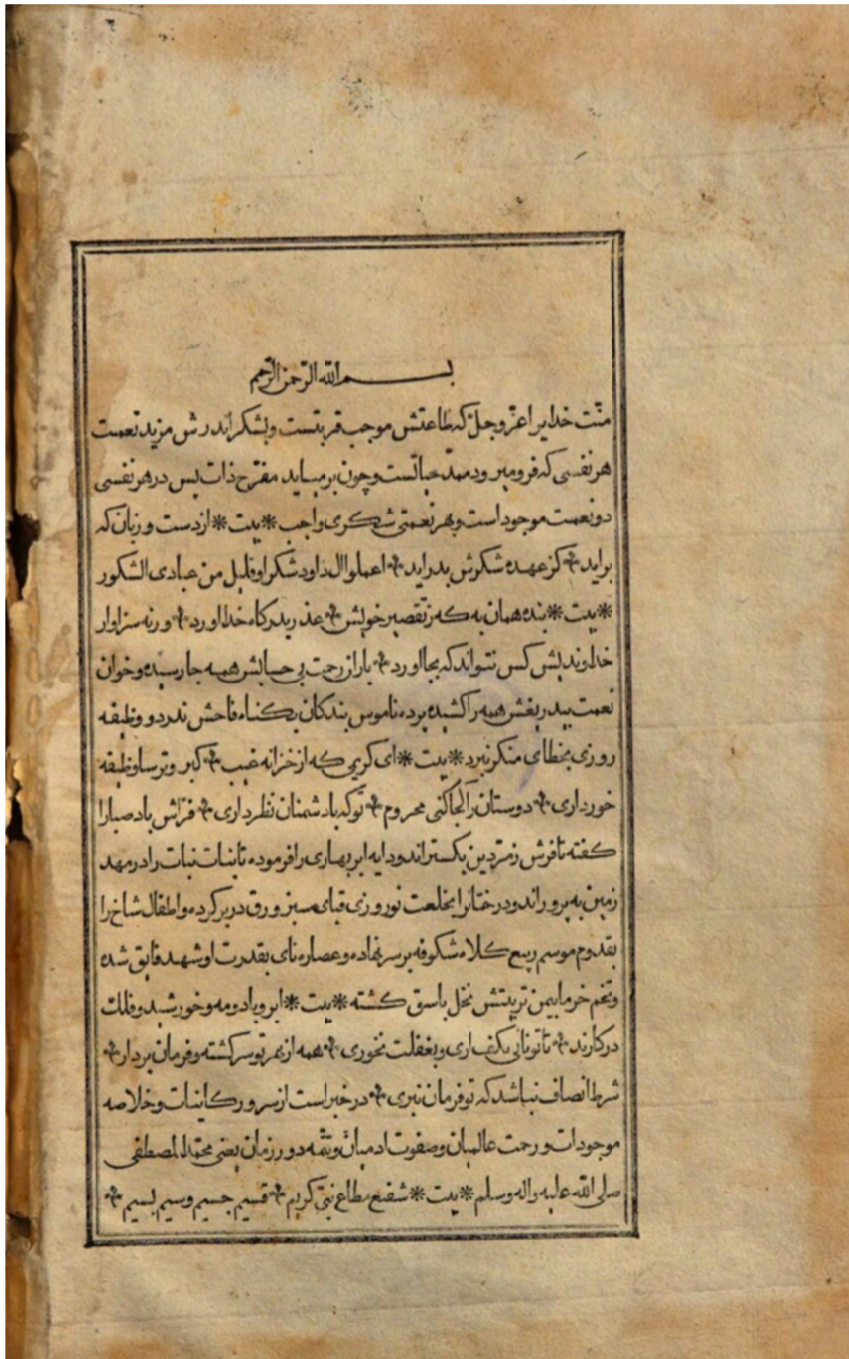 بسم الله الرّحمن الرّحیم
منّت خدایرا عزّ وجلّ که طاعتش موجب قربتست وبشکر اندرش مزید نعمت
هر نفسی که فرو میرود ممدّ حیاتست وچون برمیاید مفرّح ذات پس در هر نفسی
دو نعمت موجود است وبهر نعمتی شکری واجب * بیت * از دست و زبان که
براید * کز عهده شکرش بدراید * اعملوا ال داود شکرا وقلیل من عبادی الشکور
* بیت * بنده همان به که زتقصیر خویش * عذر بدرکاه خدا اورد * ورنه سزاوار
خداوندیش کس نتواند که بجا اورد * باران رحمت بی حسابش همه جا رسیده وخوان
نعمت بیدریغش همه را کشیده پرده ناموس بندکان بکناه فاحش ندرد و وظیفه
روزی بخطای منکر نبرد * بیت * ای کریمی که از خزانه غیب * کبر وترسا وظیفه
خور داری * دوستان را کجا کنی محروم * توکه با دشمنان نظر داری * فرّاش باد صبا را
کفته تا فرش زمرّدین بکستراند ودایه ابر بهاری را فرموده تا بنات نبات را در مهد
زمین بپروراند ودرختانرا بخلعت نوروزی قبای سبز ورق در بر کرده واطفال شاخ را
بقدوم موسم ربیع کلاه شکوفه بر سر نهاده وعصاره نای بقدرت او شهد فایق شده
وتخم خرما بیمن تربیتش نخل باسق کشته * بیت * ابر وباد ومه وخورشید وفلك
درکارند * تا تو نانی بکف اری وبغفلت نخوری * همه از بهر تو سرکشته وفرمان بردار *
شرط انصاف نباشد که تو فرمان نبری * در خبر است از سرور کاینات وخلاصه
موجودات ورحمت عالمیان وصفوت ادمیان وتتمّه دور زمان یعنی محمّد المصطفی
صلی الله علیه واله وسلم * بیت * شفیع مطاع نبیّ کریم * قسیم جسیم وسیم بسیم *